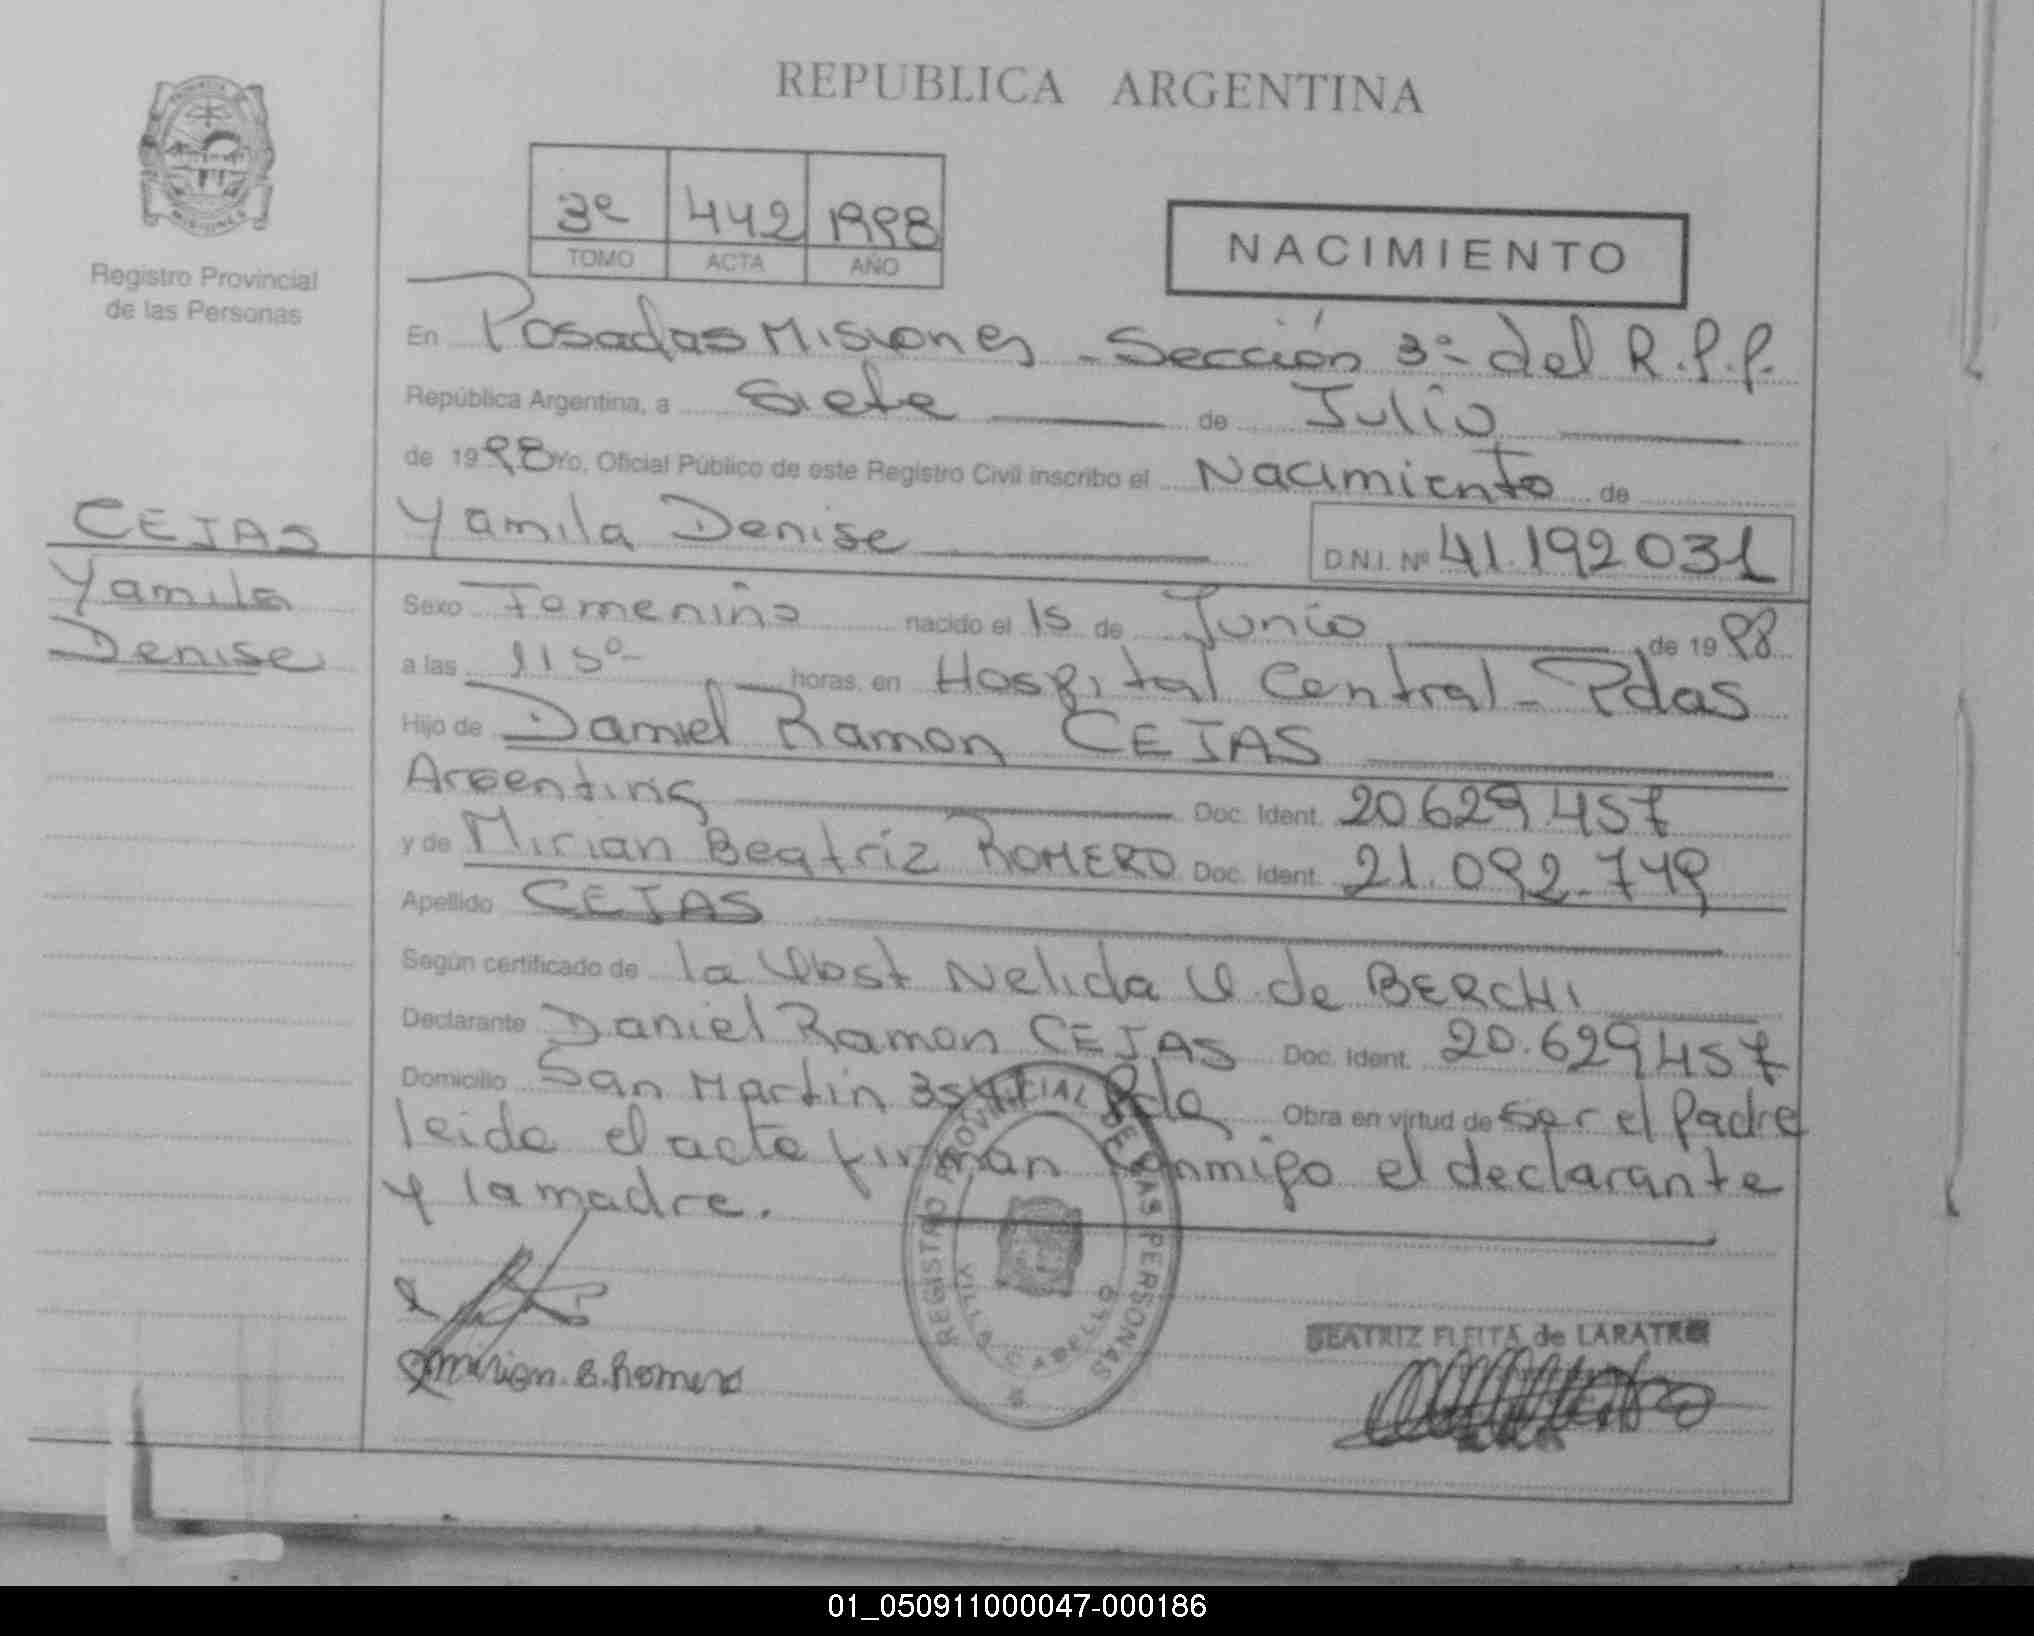 REPUBLICA ARGENTINA
Registro Provincial
de las Personas
3º 442 1998
TOMO ACTA AÑO
NACIMIENTO
En Posadas Misiones - Sección 3º- del R.P.P.
República Argentina, a Siete de Julio
de 1998 Yo, Oficial Público de este Registro Civil inscribo el Nacimiento de
CEJAS
Yamila
Denise
Yamila Denise D.N.I. Nº 41.192031
Sexo Femenino nacido el 15 de Junio de 1998
a las 1150- horas, en Hospital Central - Pdas
Hijo de Daniel Ramon CEJAS
Argentina Doc. Ident. 20629457
y de Mirian Beatriz ROMERO Doc. Ident. 21.092.749
Apellido CEJAS
Según certificado de la Obst Nelida de BERCHI
Declarante Daniel Ramon CEJAS Doc. Ident. 20.629457
Domicilio San Martin Pda Obra en virtud de Ser el Padre
leido el acta firman conmigo el declarante
y la madre.
REGISTRO PROVINCIAL DE LAS PERSONAS
VILLA CABELLO
Mirian.B.Romero
BEATRIZ FLEITA de LARATRO
01_050911000047-000186